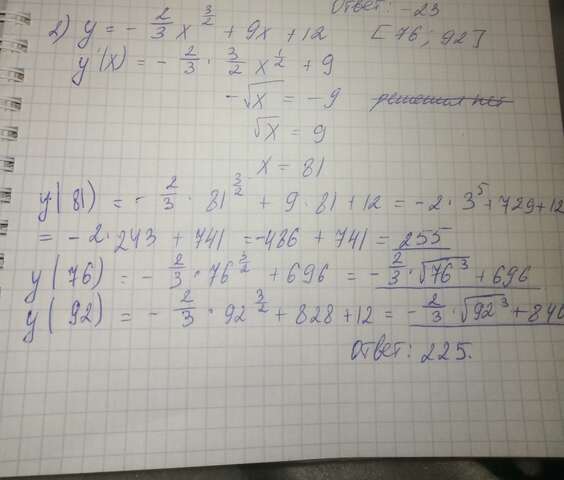 Ответ: -23
2) y = - 2/3 x^(3/2) + 9x + 12 [76; 92]
y'(x) = - 2/3 · 3/2 x^(1/2) + 9
-√x = -9 решения нет
√x = 9
x = 81
y(81) = - 2/3 · 81^(3/2) + 9 · 81 + 12 = -2 · 3^5 + 729 + 12
= -2 · 243 + 741 = -486 + 741 = 255
y(76) = - 2/3 · 76^(3/2) + 696 = - 2/3 · √76^3 + 696
y(92) = - 2/3 · 92^(3/2) + 828 + 12 = - 2/3 · √92^3 + 840
Ответ: 225.